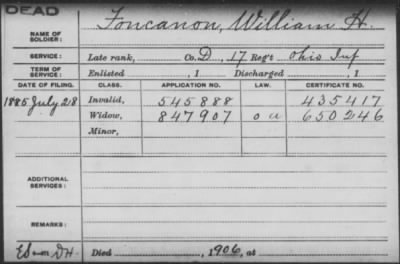 DEAD
NAME OF SOLDIER: Foncanon, William H.
SERVICE: Late rank, Co. D, 17 Reg't Ohio Inf
TERM OF SERVICE: Enlisted , 1 Discharged , 1
DATE OF FILING. CLASS. APPLICATION NO. LAW. CERTIFICATE NO.
1885 July 28 Invalid, 545888 435417
Widow, 847907 650246
Minor,
ADDITIONAL SERVICES:
REMARKS:
Died , 1906, at